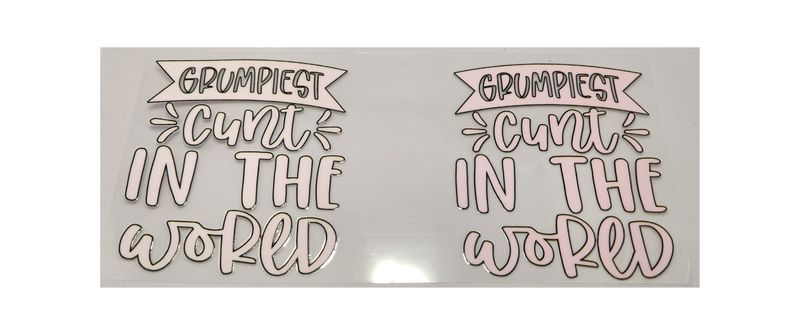 GRUMPIEST
Cunt
IN THE
WORLD
GRUMPIEST
Cunt
IN THE
WORLD